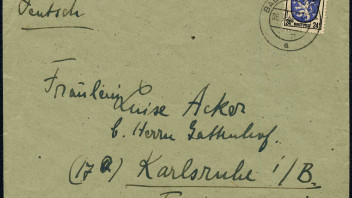 Deutsch
24
Fräulein
Luise Acker
b. Herrn Gattenhof.
(17a) Karlsruhe i/B.